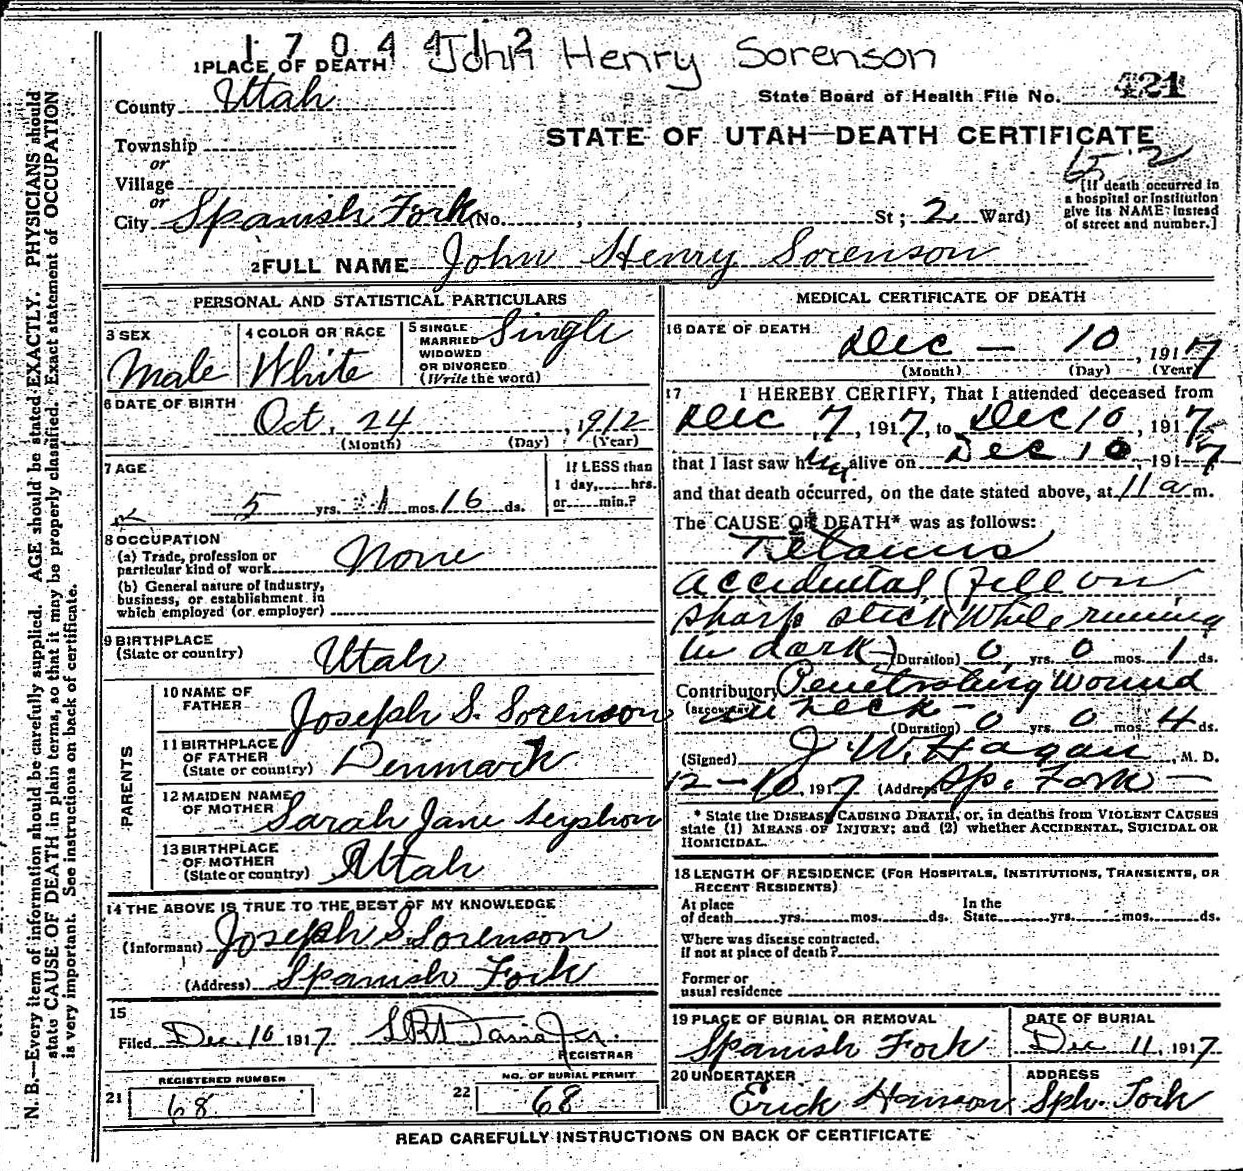 1 7 0 4 4 1 2 John Henry Sorenson
1 PLACE OF DEATH
County Utah
State Board of Health File No. 421
Township
STATE OF UTAH—DEATH CERTIFICATE
or
Village
652
or
City Spanish Fork (No. , St; 2 Ward)
[If death occurred in
a hospital or institution
give its NAME instead
of street and number.]
2 FULL NAME John Henry Sorenson
PERSONAL AND STATISTICAL PARTICULARS
3 SEX
Male
4 COLOR OR RACE
White
5 SINGLE
MARRIED
WIDOWED
OR DIVORCED
(Write the word)
Single
6 DATE OF BIRTH
Oct. 24, 1912
(Month) (Day) (Year)
7 AGE
5 yrs. 1 mos. 16 ds.
If LESS than
1 day, hrs.
or min.?
8 OCCUPATION
(a) Trade, profession or
particular kind of work None
(b) General nature of industry,
business, or establishment in
which employed (or employer)
9 BIRTHPLACE
(State or country) Utah
PARENTS
10 NAME OF
FATHER Joseph S. Sorenson
11 BIRTHPLACE
OF FATHER
(State or country) Denmark
12 MAIDEN NAME
OF MOTHER Sarah Jane
13 BIRTHPLACE
OF MOTHER
(State or country) Utah
14 THE ABOVE IS TRUE TO THE BEST OF MY KNOWLEDGE
(Informant) Joseph S Sorenson
(Address) Spanish Fork
15
Filed Dec 10 1917 Davis Jr.
REGISTRAR
REGISTERED NUMBER
21 68
NO. OF BURIAL PERMIT
22 68
MEDICAL CERTIFICATE OF DEATH
16 DATE OF DEATH
Dec — 10, 1917
(Month) (Day) (Year)
17 I HEREBY CERTIFY, That I attended deceased from
Dec 7, 1917, to Dec 10, 1917
that I last saw him alive on Dec 10, 1917
and that death occurred, on the date stated above, at 11 a m.
The CAUSE OF DEATH* was as follows:
Tetanus
accidental (Fell on
sharp stick While running
in dark—) (Duration) 0 yrs. 0 mos. 1 ds.
Contributory Penetrating Wound
(SECONDARY) in neck — (Duration) 0 yrs. 0 mos. 4 ds.
(Signed) J. W. Hagan, M. D.
12–10, 1917 (Address) Sp. Fork —
* State the DISEASE CAUSING DEATH, or, in deaths from VIOLENT CAUSES
state (1) MEANS OF INJURY; and (2) whether ACCIDENTAL, SUICIDAL OR
HOMICIDAL.
18 LENGTH OF RESIDENCE (FOR HOSPITALS, INSTITUTIONS, TRANSIENTS, OR
RECENT RESIDENTS)
At place
of death yrs. mos. ds.
In the
State yrs. mos. ds.
Where was disease contracted,
if not at place of death?
Former or
usual residence
19 PLACE OF BURIAL OR REMOVAL
Spanish Fork
DATE OF BURIAL
Dec 11, 1917
20 UNDERTAKER
Erick Hanson
ADDRESS
Sph. Fork
READ CAREFULLY INSTRUCTIONS ON BACK OF CERTIFICATE
N. B.—Every item of information should be carefully supplied. AGE should be stated EXACTLY. PHYSICIANS should
state CAUSE OF DEATH in plain terms, so that it may be properly classified. Exact statement of OCCUPATION
is very important. See instructions on back of certificate.